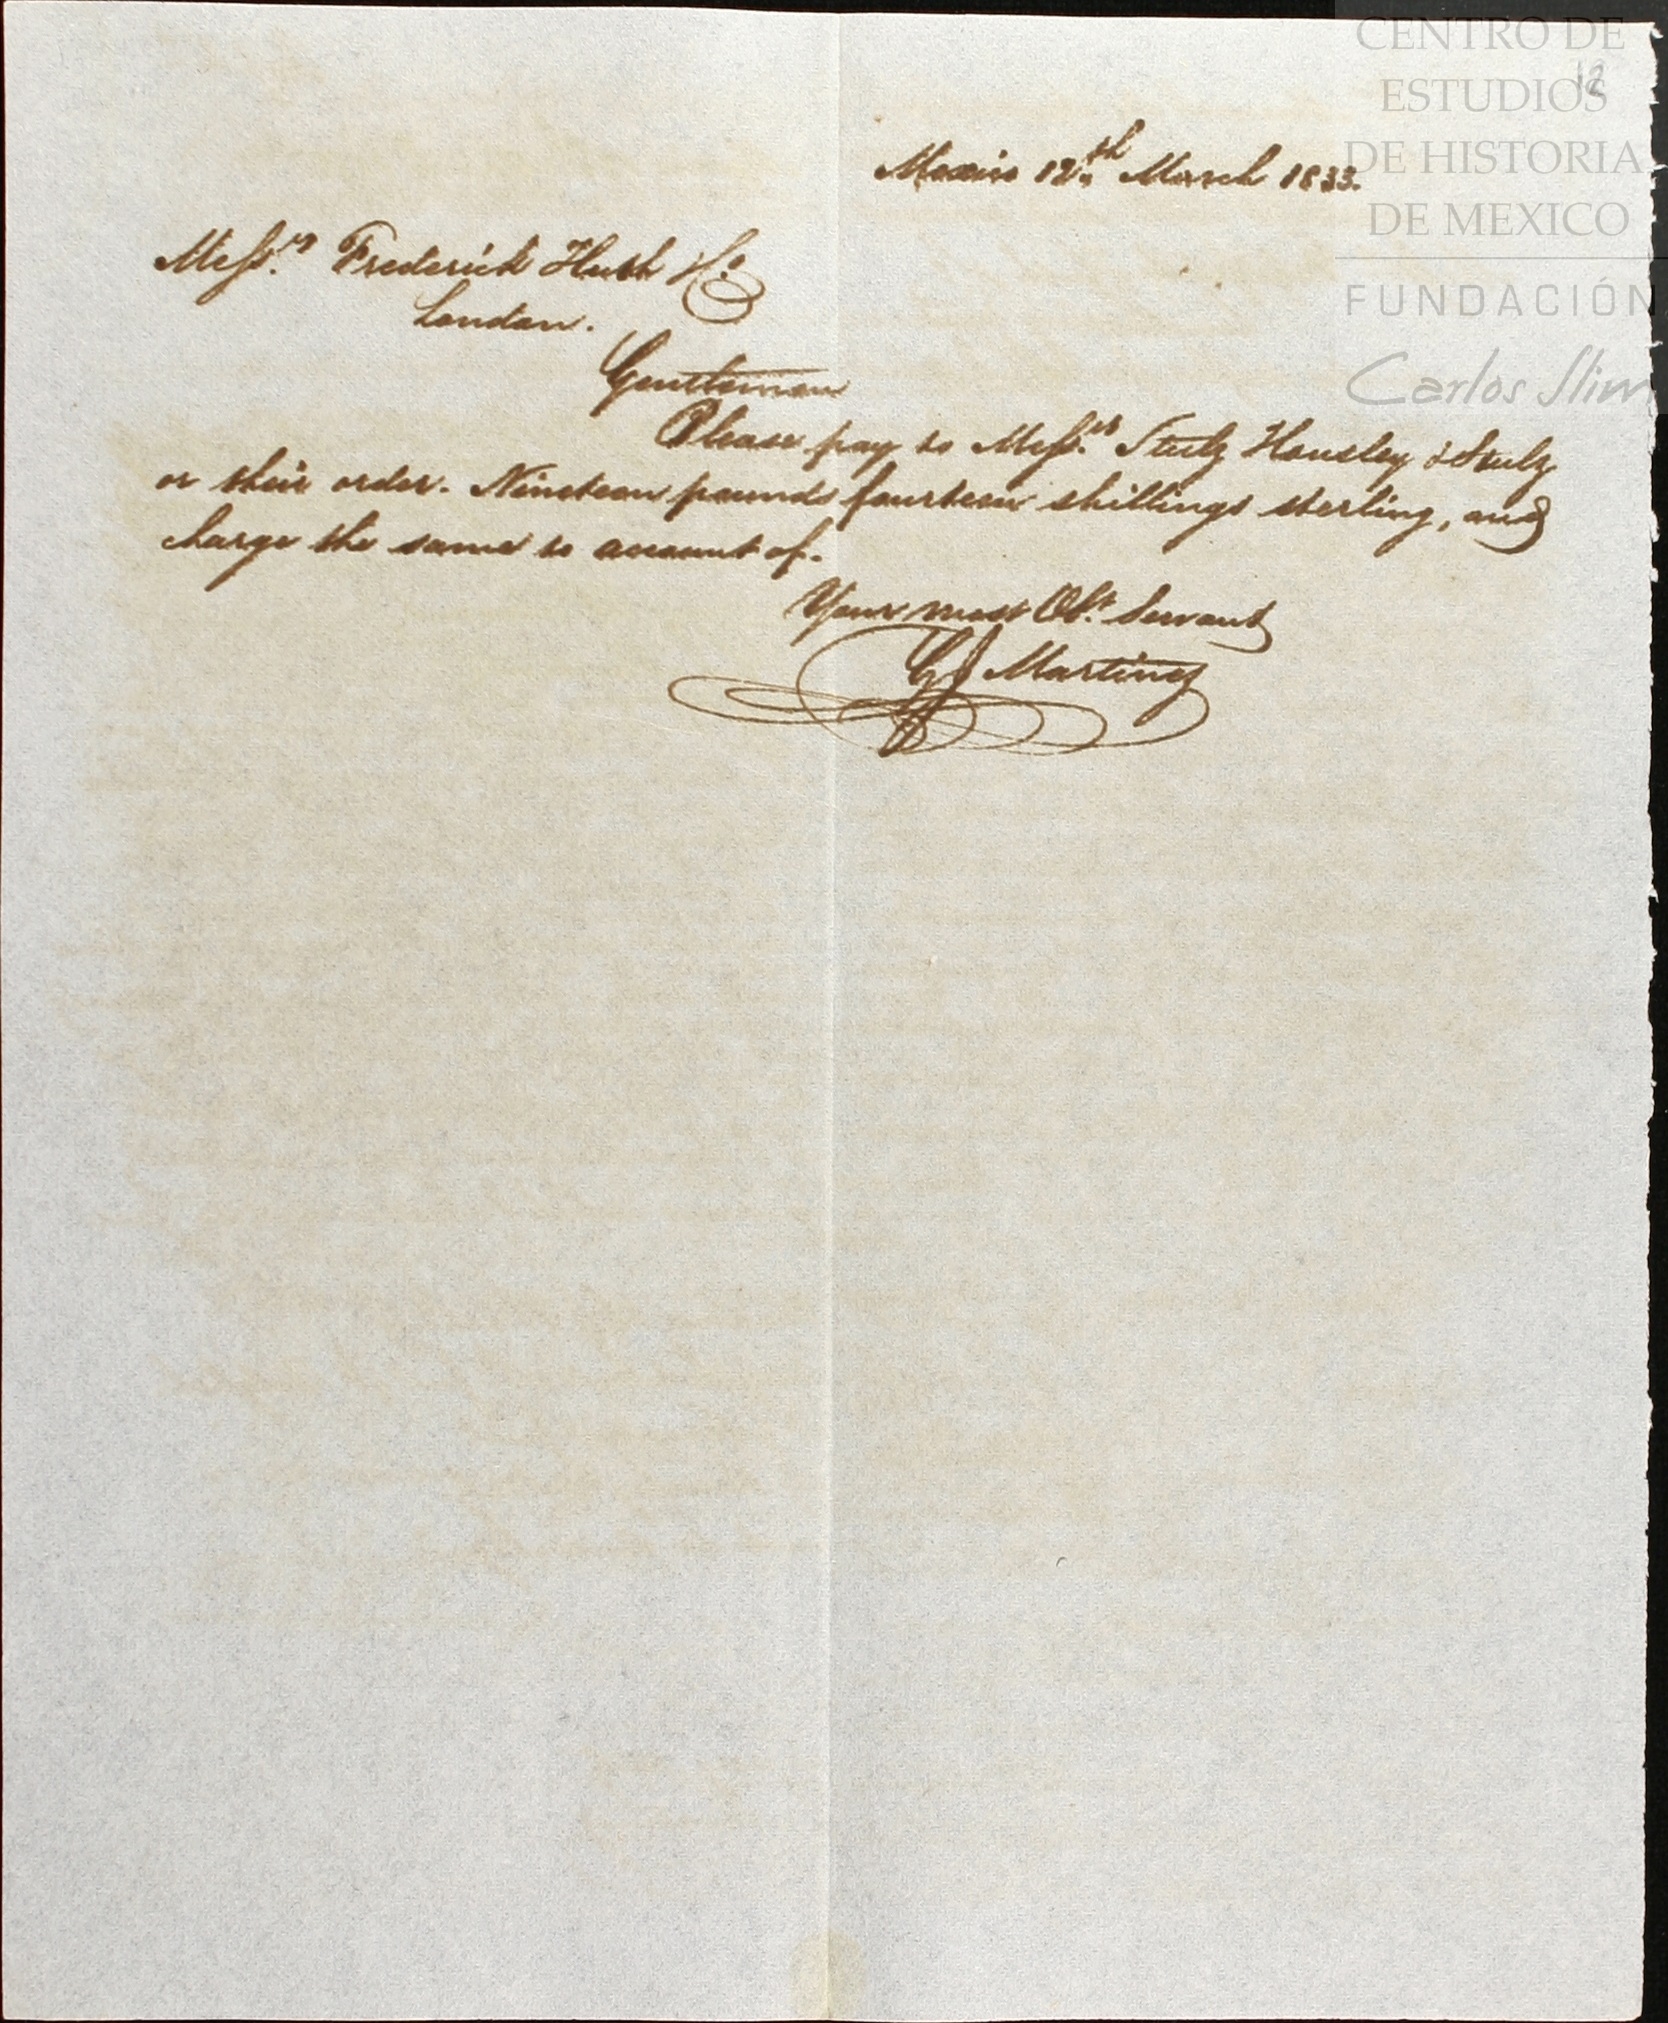 12
Mexico 12th March 1833.
Messrs Frederick Huth & Co
London.
Gentlemen
Please pay to Messrs Stulz Housley & Stulz
or their order. Nineteen pounds fourteen shillings sterling, and
charge the same to account of.
Your most Obt. Servant
GJ Martinez
CENTRO DE
ESTUDIOS
DE HISTORIA
DE MEXICO
FUNDACIÓN
Carlos Slim